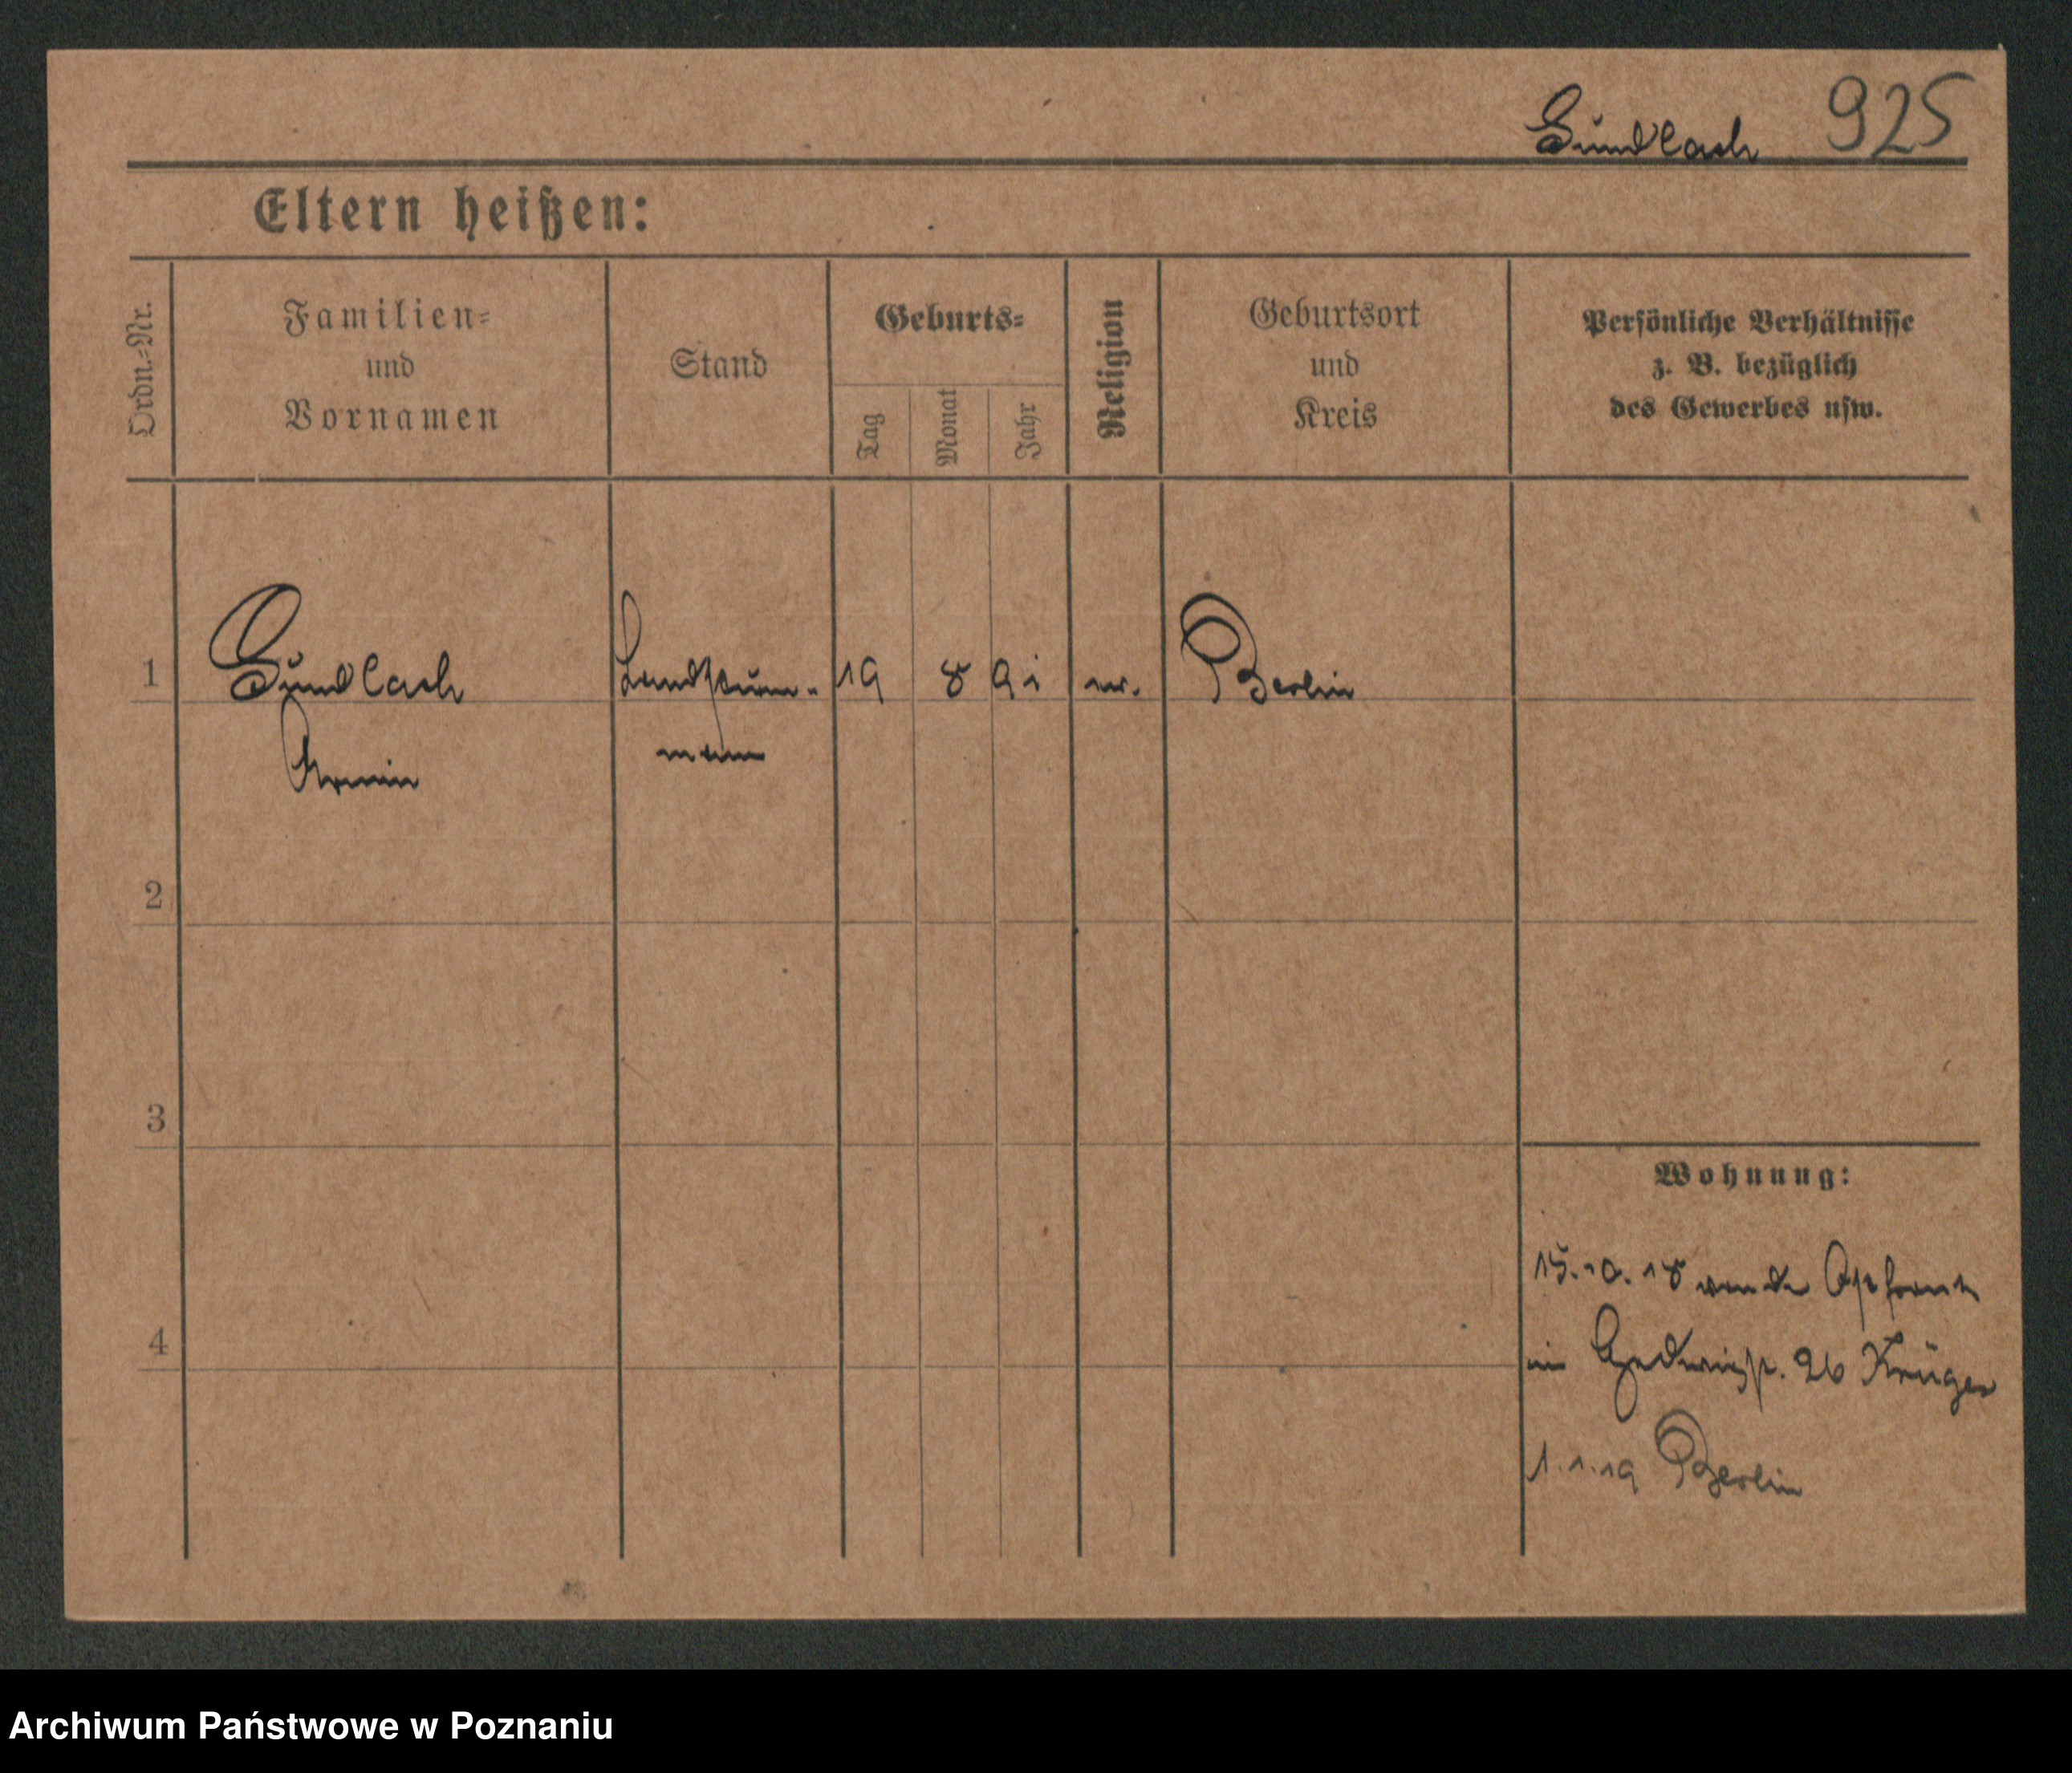 Gundlach 925
Eltern heißen:
Ordn.=Nr.
Familien=
und
Vornamen
Stand
Geburts=
Tag
Monat
Jahr
Religion
Geburtsort
und
Kreis
Persönliche Verhältnisse
z. B. bezüglich
des Gewerbes usw.
1 Gundlach Landsturm- 19 8 91 ev. Berlin
Armin mann
2
3
Wohnung:
15.10.18
4
in 26 Krüger
1.1.19 Berlin
Archiwum Państwowe w Poznaniu